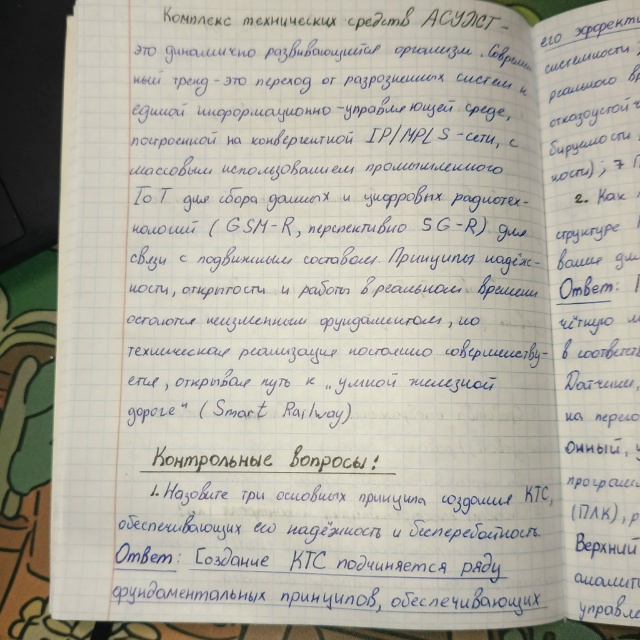 Комплекс технических средств АСУЖТ -
это динамично развивающийся организм. Современ
ный тренд - это переход от разрозненных систем к
единой информационно-управляющей среде,
построенной на конвергентной IP/MPLS-сети, с
массовым использованием промышленного
IoT для сбора данных и цифровых радиотех-
нологий (GSM-R, перспективно 5G-R) для
связи с подвижным составом. Принципы надёж-
ности, открытости и работы в реальном времени
остаются неизменным фундаментом, но
техническая реализация постоянно совершенству-
ется, открывая путь к „умной железной
дороге" (Smart Railway)
Контрольные вопросы:
1. Назовите три основных принципа создания КТС,
обеспечивающих его надёжность и бесперебойность
Ответ: Создание КТС подчиняется ряду
фундаментальных принципов, обеспечивающих
его эффекти
системности
реального вр
отказоустойч
бируемости
ности); 7 П
2. Как
структуре
ваше дл
Ответ: П
чёткую
в соответств
Датчики,
на перего
онный,
програм
(ПЛК), р
Верхний
аналити
управле